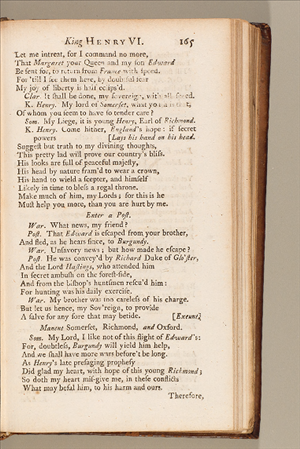 King HENRY VI. 165
Let me intreat, for I command no more,
That Margaret your Queen and my son Edward
Be sent for, to return from France with speed.
For 'till I see them here, by doubtful fear
My joy of liberty is half eclips'd.
Clar. It shall be done, my Sovereign, with all speed.
K. Henry. My lord of Somerset, what youth is that,
Of whom you seem to have so tender care?
Som. My Liege, it is young Henry, Earl of Richmond.
K. Henry. Come hither, England's hope: if secret
powers [Lays his hand on his head.
Suggest but truth to my divining thoughts,
This pretty lad will prove our country's bliss.
His looks are full of peaceful majesty,
His head by nature fram'd to wear a crown,
His hand to wield a scepter, and himself
Likely in time to bless a regal throne.
Make much of him, my Lords; for this is he
Must help you more, than you are hurt by me.
Enter a Post.
War. What news, my friend?
Post. That Edward is escaped from your brother,
And fled, as he hears since, to Burgundy.
War. Unsavory news; but how made he escape?
Post. He was convey'd by Richard Duke of Glo'ster,
And the Lord Hastings, who attended him
In secret ambush on the forest-side,
And from the bishop's huntsmen rescu'd him:
For hunting was his daily exercise.
War. My brother was too careless of his charge.
But let us hence, my Sov'reign, to provide
A salve for any sore that may betide. [Exeunt.
Manent Somerset, Richmond, and Oxford.
Som. My Lord, I like not of this flight of Edward's:
For, doubtless, Burgundy will yield him help,
And we shall have more wars before't be long.
As Henry's late presaging prophesy
Did glad my heart, with hope of this young Richmond;
So doth my heart mis-give me, in these conflicts
What may befal him, to his harm and ours.
Therefore,